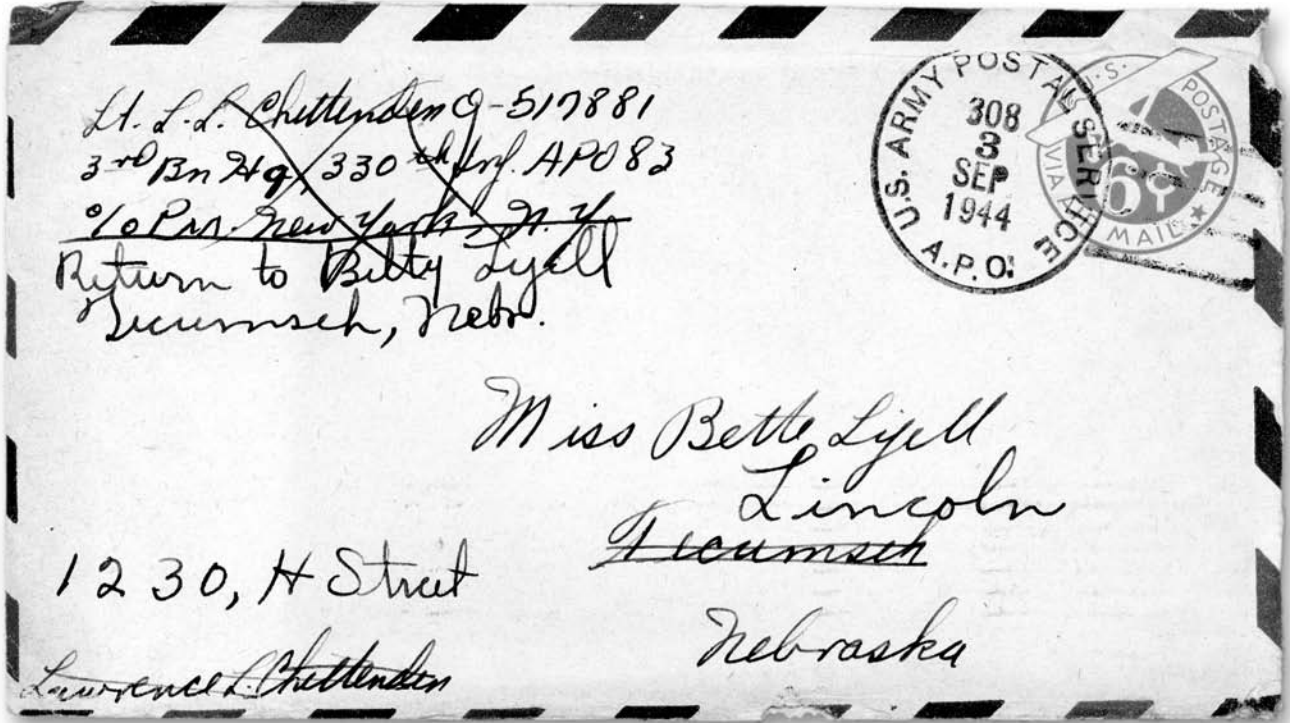 Lt. L. L. Chittenden O-517881
3rd Bn Hq, 330th Inf. APO 83
c/o P.M. New York, N.Y.
Return to Betty Lyell
Tecumseh, Nebr.
U.S. ARMY POSTAL SERVICE
308
3
SEP
1944
A.P.O.
U.S. POSTAGE
6¢
VIA AIR MAIL
Miss Bette Lyell
Lincoln
Tecumseh
Nebraska
1230, H Street
Lawrence L. Chittenden